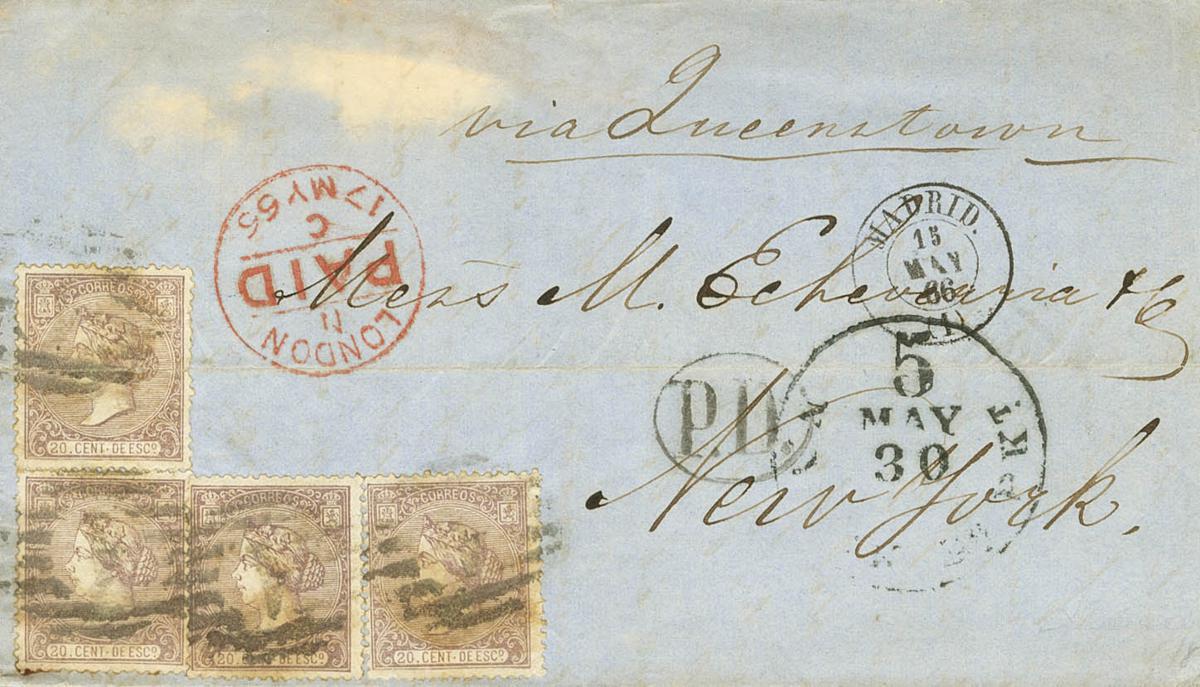 via Queenstown
LONDON
11
PAID
C
17 MY 65
MADRID.
15
MAY
66
(1)
Mess M. Echevarria & Co
P.D.
5
MAY
30
New York.
CORREOS
20. CENT. DE ESCO
CORREOS
20. CENT. DE ESCO
CORREOS
20. CENT. DE ESCO
CORREOS
20. CENT. DE ESCO